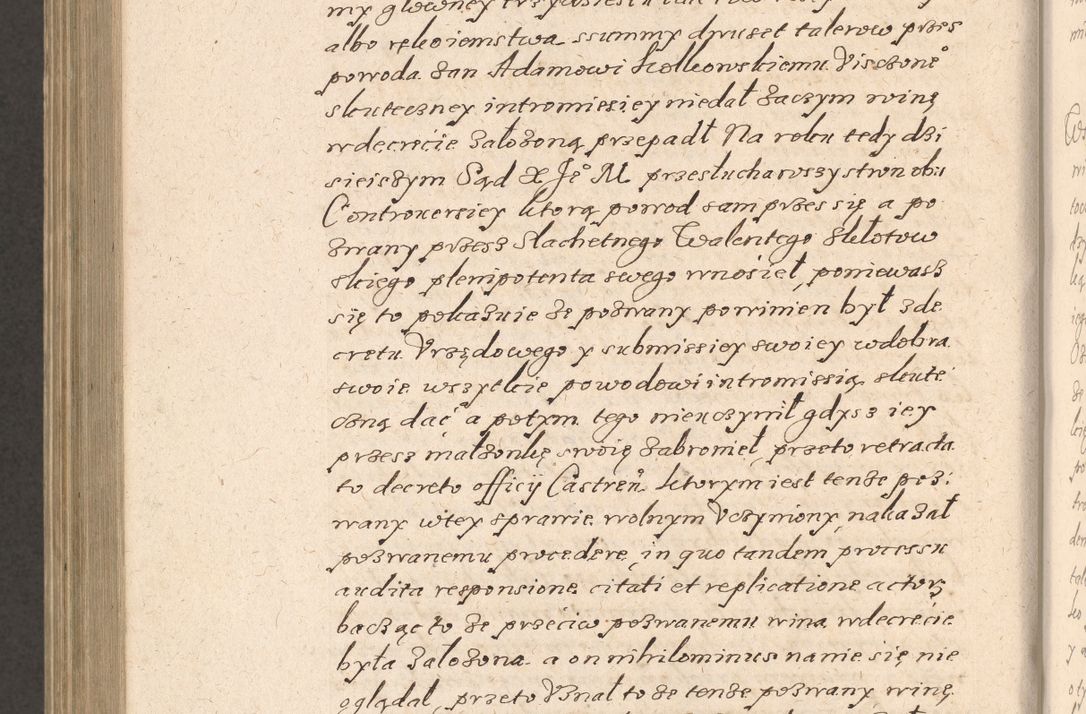 my główney
albo rękoiemstwa ssummy dwuset talerow przes
powoda Jan Adamowi Kolkowskiemu Visczone°
skuteczney intromissiey niedał zaczym winę
wdecrecie założoną przepadł Na roku tedy dzi
sieiszym Sąd X Je° M przesłuchawszy stron obu
Controuersiey ktorą powod sam przes się a po
zwany przesz Slachetnego Walentego
skiego plenipotenta swego wnosieł, poniewasz
się to pokazuie że pozwany powinien był zde
cretu Vrzędowego y submissiey swoiey wdobra
swoie wszytkie powodowi intromissią skute
czną dać a potym tego nieuczynił gdysz iey
przesz małżonkę swoię zabronieł, przeto retracta
to decreto officij Castren. ktorym iest tenże poz:
wany wtey sprawie wolnym Vczyniony, nakazał
pozwanemu procedere, in quo tandem processu
audita responsione citati et replicatione actorz
bacząc to że przeciw pozwanemu wina wdecrecie
była założona a on nihilominus namie się nie
oglądał, przeto Vznał to że tenże pozwany winę